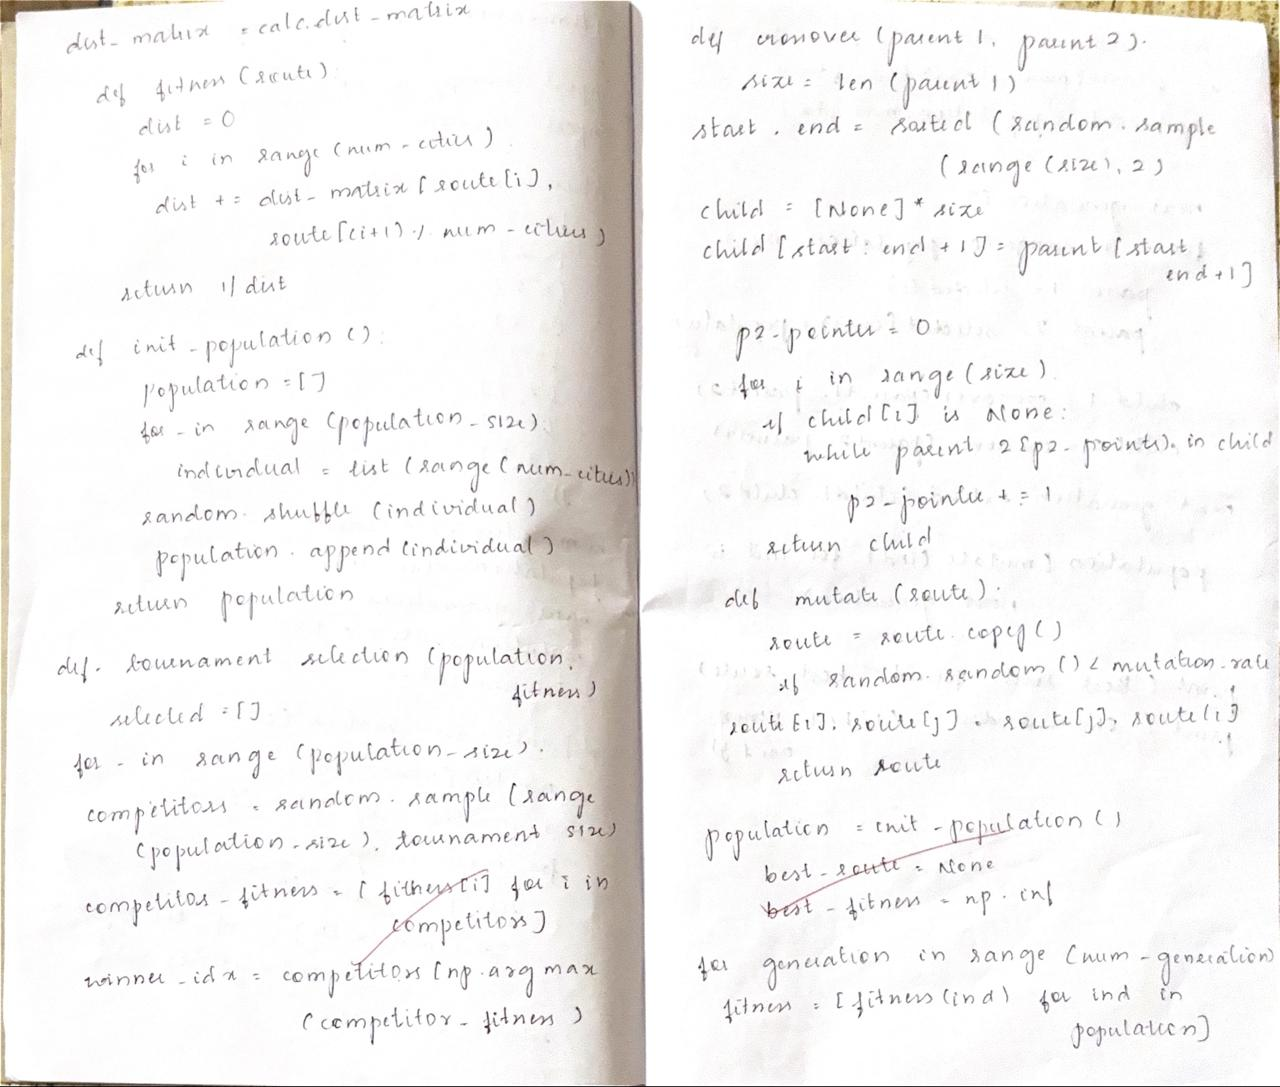 dist_matrix = calc.dist_matrix
def fitness (route):
dist = 0
for i in range (num_cities)
dist += dist_matrix [route[i],
route[(i+1) % num_cities)
return 1/dist
def init_population ():
population = []
for _ in range (population_size)
individual = list (range (num_cities))
random. shuffle (individual)
population. append (individual)
return population
def. tournament selection (population,
fitness)
selected = []
for _ in range (population_size).
competitors = random. sample (range
(population_size), tournament size)
competitor_fitness = [fitness[i] for i in
competitors]
winner_idx = competitors [np. arg max
(competitor_fitness)
def cronover (parent 1, parent 2).
size = len (parent 1)
start. end = sorted (random. sample
(range (size), 2)
child = [None] * size
child [start : end + 1] = parent [start
end+1]
p2_pointer = 0
for i in range (size)
if child [i] is None:
while parent 2 [p2_pointer). in child
p2_pointer += 1
return child
def mutate (route):
route = route. copy ()
if random. random () < mutation_rate
route [i]. route [j] = route[j], route [i]
return route
population = init_population ()
best_route = None
best_fitness = np. inf
for generation in range (num_generation)
fitness = [fitness (ind) for ind in
population]